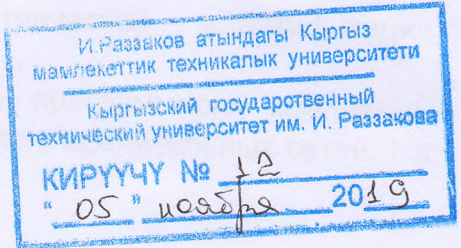 И.Раззаков атындагы Кыргыз
мамлекеттик техникалык университети
Кыргызский государственный
технический университет им. И. Раззакова
КИРҮҮЧҮ № 12
" 05 " ноября 2019